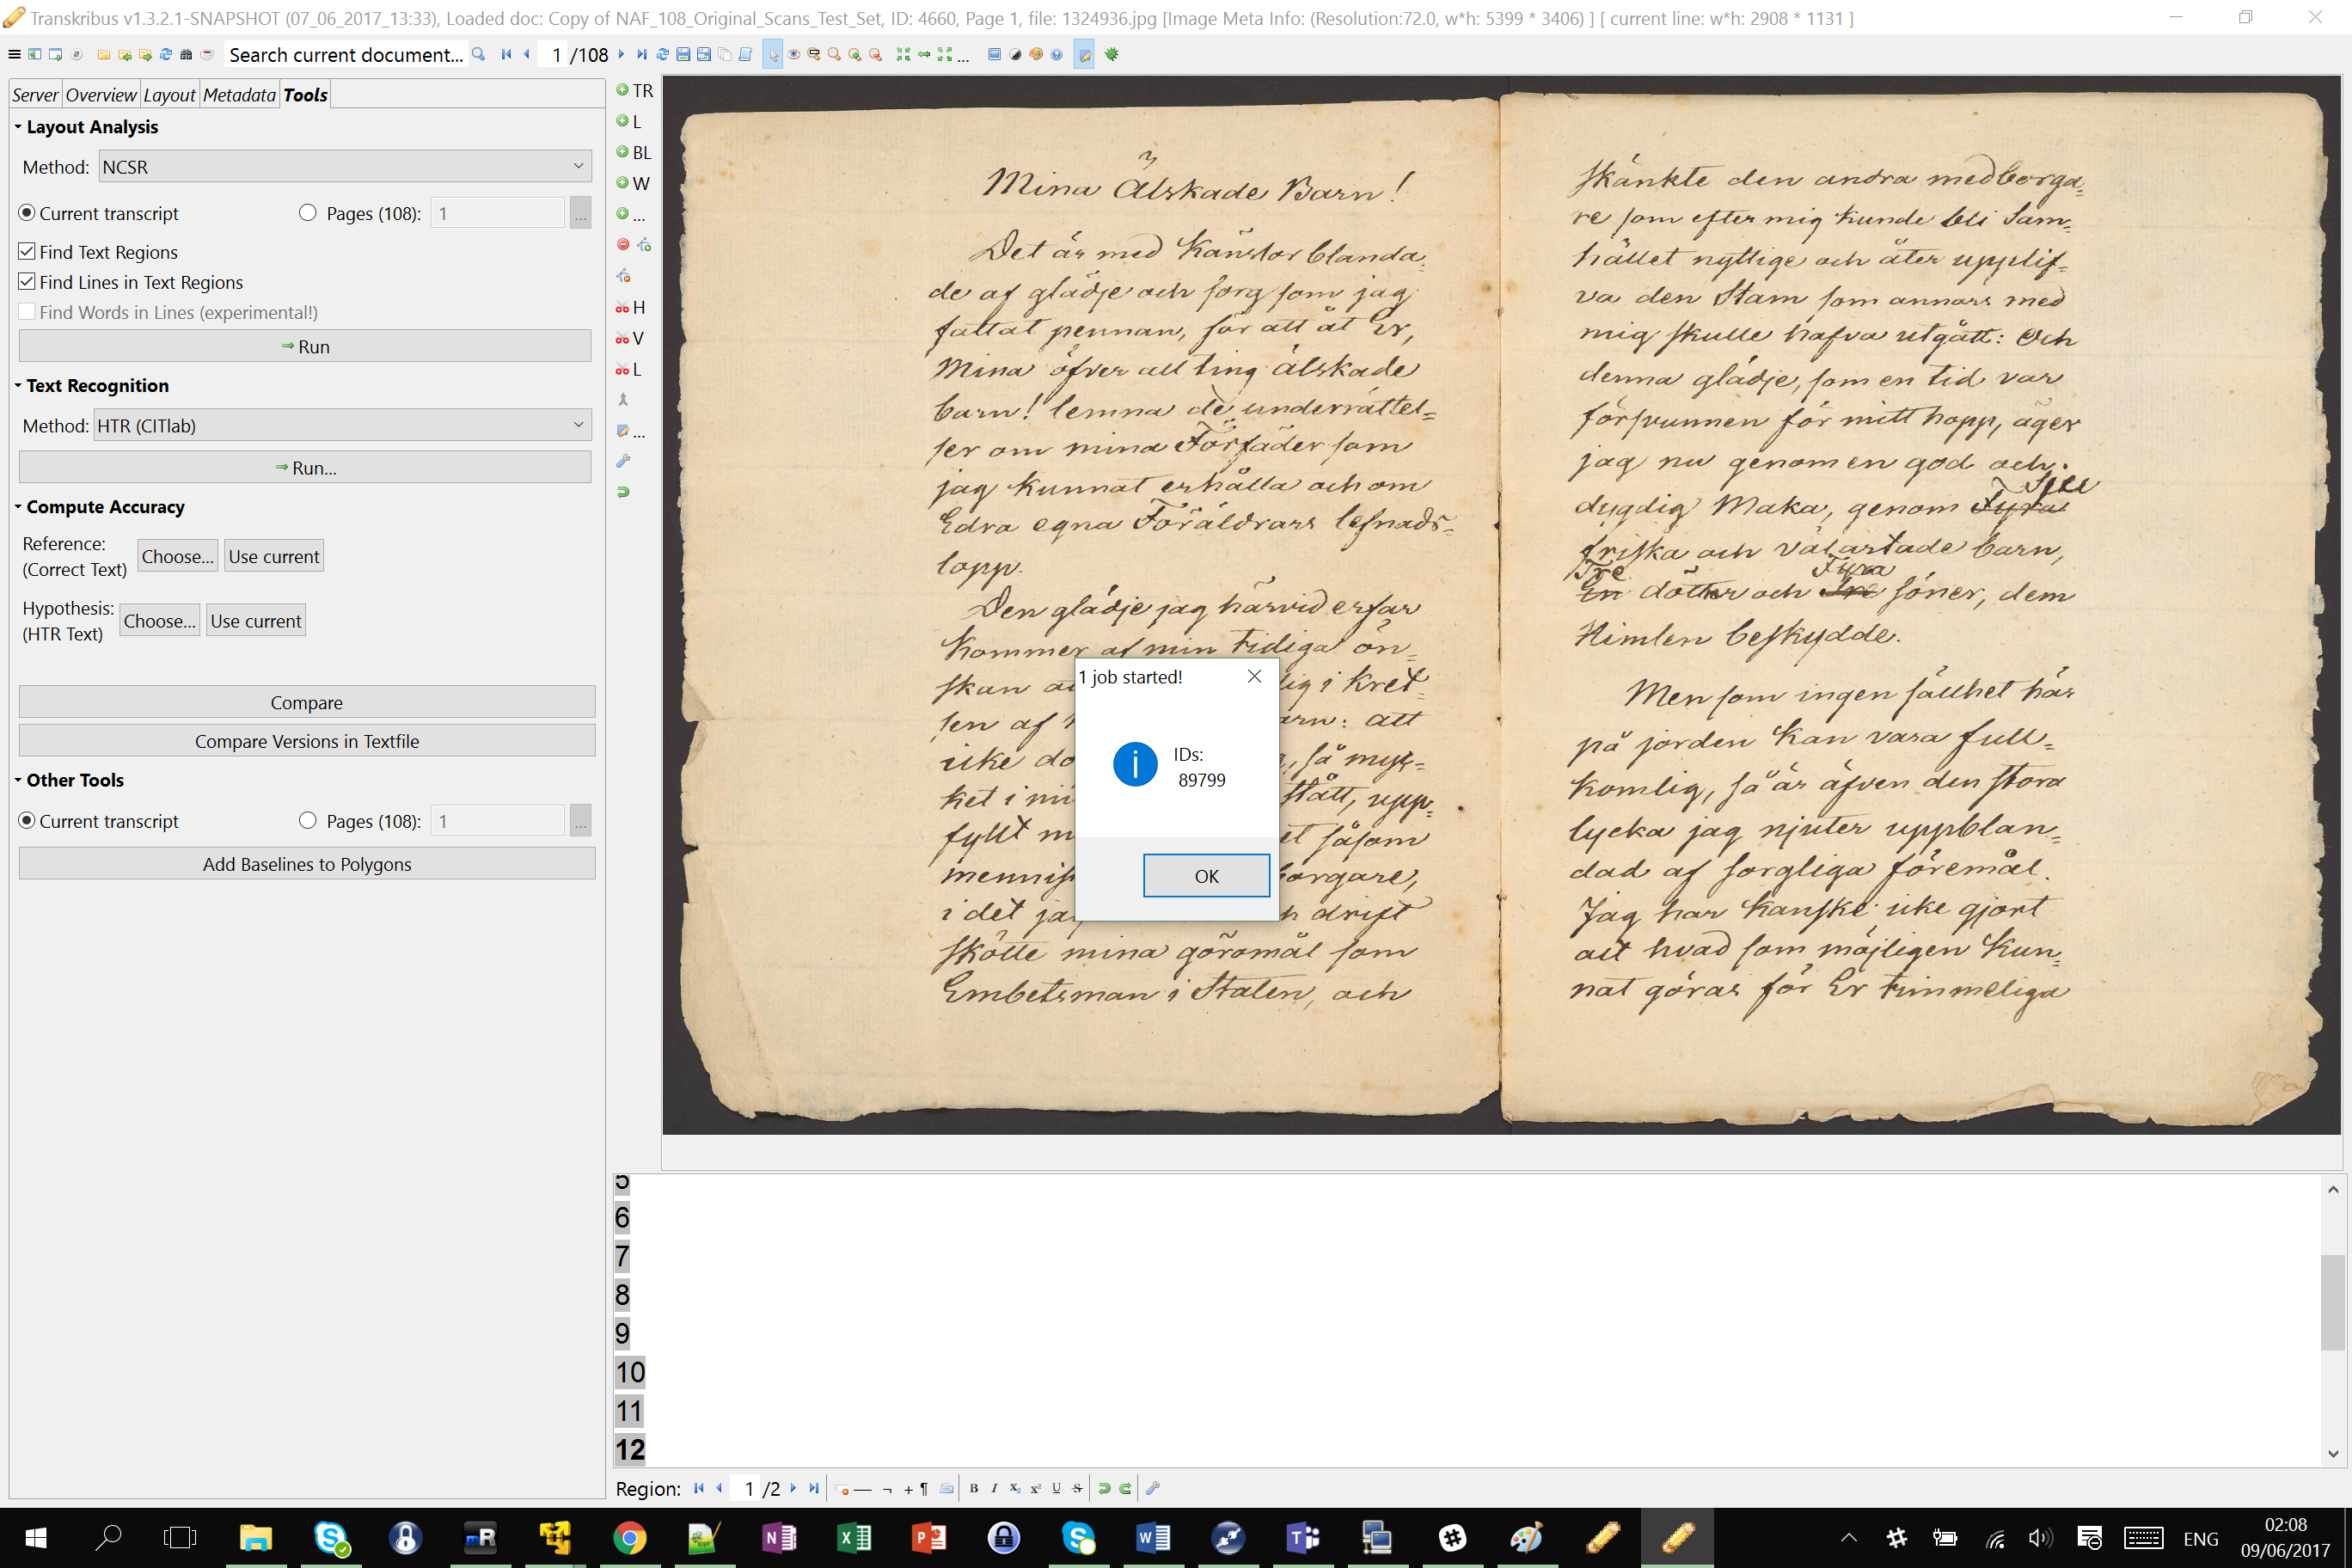 Transkribus v1.3.2.1-SNAPSHOT (07_06_2017_13:33), Loaded doc: Copy of NAF_108_Original_Scans_Test_Set, ID: 4660, Page 1, file: 1324936.jpg [Image Meta Info: (Resolution:72.0, w*h: 5399 * 3406) ] [ current line: w*h: 2908 * 1131 ]
Search current document... 1 /108 ...
Server Overview Layout Metadata Tools
Layout Analysis
Method: NCSR
Current transcript Pages (108): 1 ...
Find Text Regions
Find Lines in Text Regions
Find Words in Lines (experimental!)
Run
Text Recognition
Method: HTR (CITlab)
Run...
Compute Accuracy
Reference:
(Correct Text) Choose... Use current
Hypothesis:
(HTR Text) Choose... Use current
Compare
Compare Versions in Textfile
Other Tools
Current transcript Pages (108): 1 ...
Add Baselines to Polygons
TR
L
BL
W
...
H
V
L
...
Mina Älskade Barn!
Det är med Känslor blanda-
de af glädje och sorg som jag
fattat pennan, för att åt Er,
Mina öfver allting älskade
barn! lemna de underrättel=
ser om mina Förfäder som
jag kunnat erhålla och om
Edra egna Föräldrars lefnads-
lopp.
Den glädje jag härvid erfar
Kommer af min tidiga ön=
skan kret-
sen af att
icke så myc=
ket i upp=
fyllt såsom
borgare,
i det drift
skötte mina göromål som
Embetsman i Staten, och
skänkte den andra medborga=
re som efter mig kunde bli Sam=
hället nyttige och åter upplif=
va den Stam som annars med
mig skulle hafva utgått: Och
denna glädje, som en tid var
försvunnen för mitt hopp, äger
jag nu genom en god och
Sju
dygdig Maka, genom Fyra
friska och välartade barn,
Tre Fyra
En dötter och Tre söner, dem
Himlen beskydde.
Men som ingen sällhet här
på jorden Kan vara full=
komlig, så är äfven den stora
lycka jag njuter uppblan=
dad af sorgliga föremål.
Jag har Kanske icke gjort
allt hvad som möjligen Kun=
nat göras för Er timmeliga
1 job started!
IDs:
89799
OK
5
6
7
8
9
10
11
12
Region: 1 /2 ¬ + ¶ B I X₂ X² U S
ENG
02:08
09/06/2017